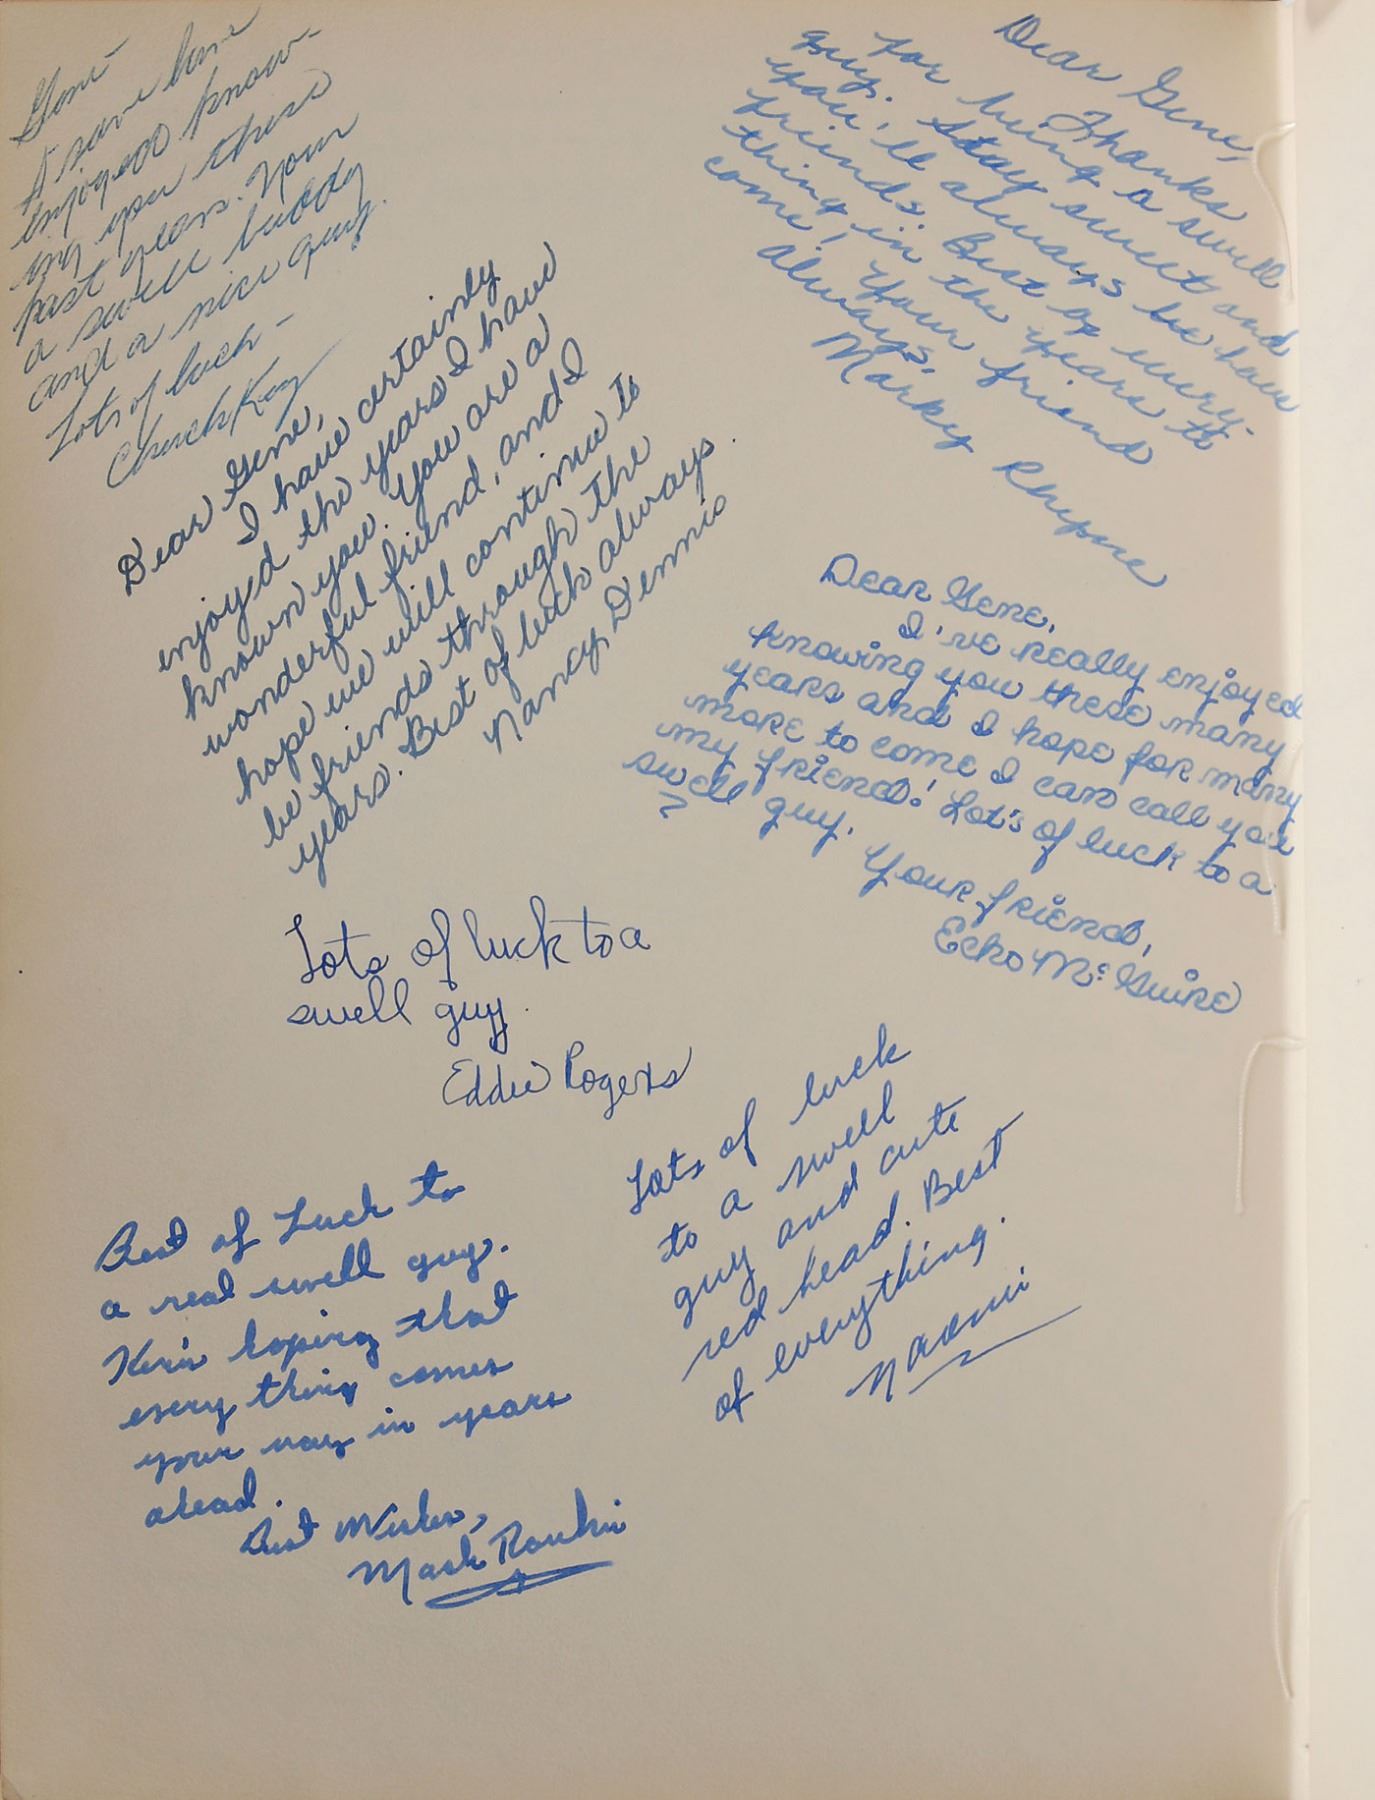 Gene -
I sure have
enjoyed know-
ing you these
past years. Your
a swell buddy
and a nice guy.
Lots of luck -
Chuck Kay
Dear Gene,
Thanks
for being a swell
guy. Stay sweet and
you'll always be have
friends. Best of every-
thing in the years to
come! Your friend
always,
Marky
Dear Gene,
I have certainly
enjoyed the years I have
known you. You are a
wonderful friend, and I
hope we will continue to
be friends through the
years. Best of luck always.
Nancy Dennis
Dear Gene,
I've really enjoyed
knowing you these many
years and I hope for many
more to come I can call you
my friend! Lot's of luck to a
swell guy.
Your friend,
Echo McGuire
Lots of luck to a
swell guy.
Eddie Rogers
Lots of luck
to a swell
guy and cute
red head. Best
of everything.
Naomi
Best of Luck to
a real swell guy.
Her's hoping that
every thing comes
your way in years
ahead.
Best Wishes,